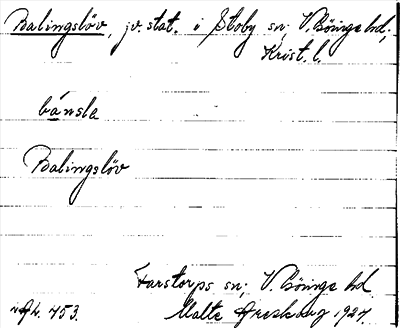 Balingslöv, jv. stat. i Stoby sn, V. Göinge hd,
Krist. l.
bánsla
Balingslöv
Farstorps sn, V. Göinge hd
Malte 1927.
453.